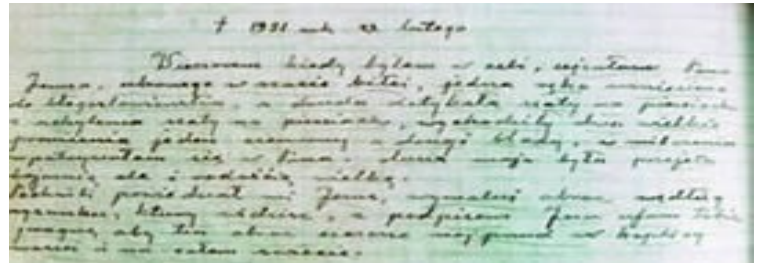 † 1931 rok 22 lutego
Wieczorem kiedy byłam w celi, ujrzałam Pana
Jezusa, ubranego w szacie białej, jedna ręka wzniesiona
do błogosławieństwa, a druga dotykała szaty na piersiach
z uchylenia szaty na piersiach, wychodziły dwa wielkie
promienie jeden czerwony a drugi blady, w milczeniu
wpatrywałam się w Pana. dusza moja była przejęta
ale i radością wielką.
Po chwili powiedział mi Jezus, wymaluj obraz według
rysunku, który widzisz, z podpisem Jezu ufam Tobie
pragnę, aby ten obraz czczono najpierw w kaplicy
waszej i na całym świecie.